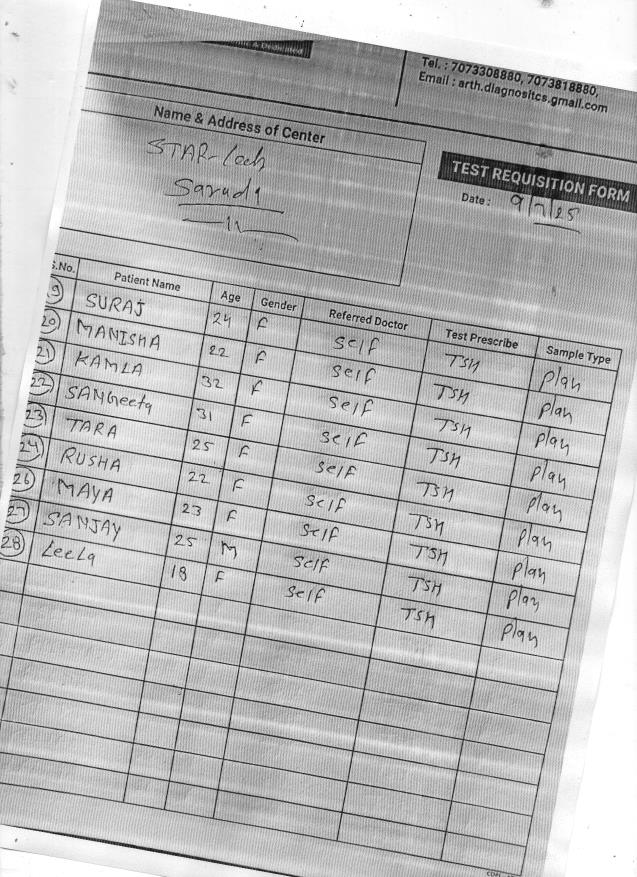 & Dedicated
Tel. : 7073308880, 7073818880,
Email : arth.diagnositcs.gmail.com
Name & Address of Center
STAR-Lech
Sarudi
TEST REQUISITION FORM
Date : 9/7/25
S.No. Patient Name Age Gender Referred Doctor Test Prescribe Sample Type
19 SURAJ 24 F self TSH plan
20 MANISHA 22 F self TSH plan
21 KAMLA 32 F self TSH plan
22 SANGeeta 31 F self TSH plan
23 TARA 25 F self TSH plan
24 RUSHA 22 F self TSH plan
26 MAYA 23 F self TSH plan
27 SANJAY 25 M self TSH plan
28 Leela 18 F self TSH plan